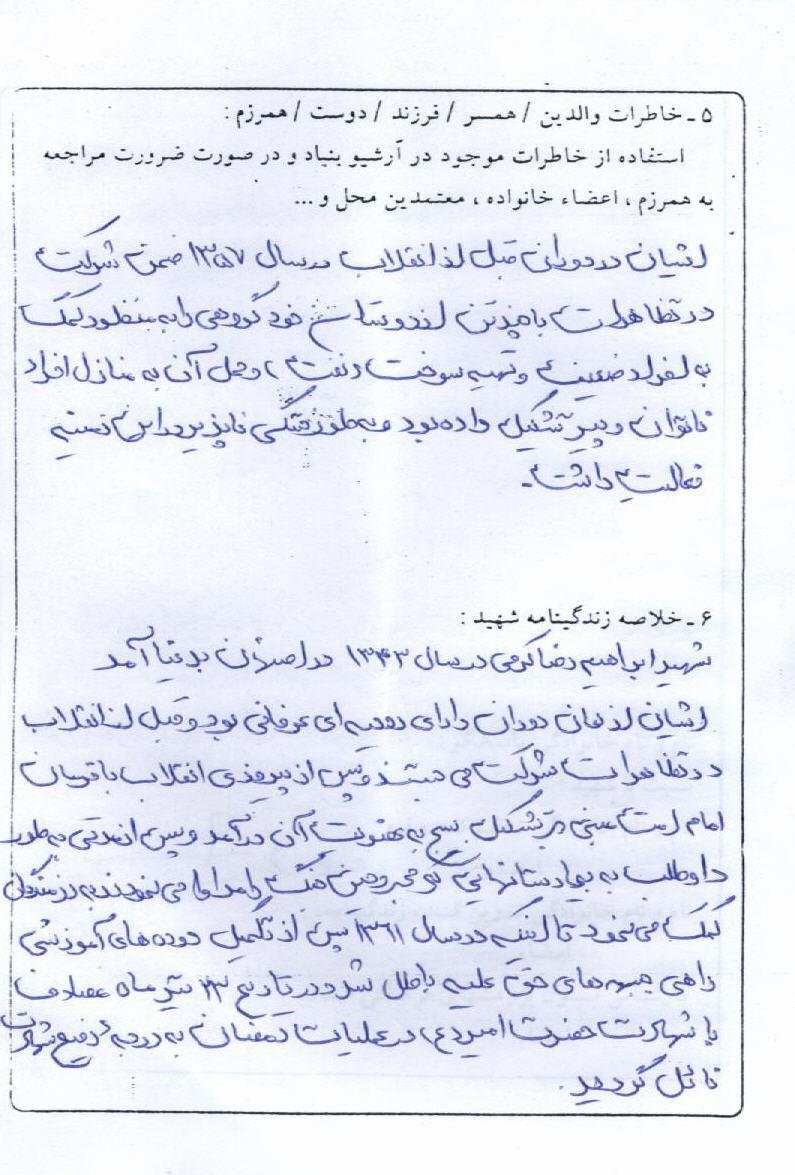 ۵ ـ خاطرات والدین / همسر / فرزند / دوست / همرزم :
استفاده از خاطرات موجود در آرشیو بنیاد و در صورت ضرورت مراجعه
به همرزم ، اعضاء خانواده ، معتمدین محل و ...
ایشان در دوران قبل از انقلاب در سال ۱۳۵۷ ضمن شرکت
در تظاهرات با چند تن از دوستان خود گروهی را به منظور کمک
به افراد ضعیف و تهیه سوخت و نفت و حمل آن به منازل افراد
ناتوان و پیر تشکیل داده بود و بطور خستگی ناپذیر در این زمینه
فعالیت داشت .
۶ ـ خلاصه زندگینامه شهید :
شهید ابراهیم رضا کرمی در سال ۱۳۴۳ در اصفهان بدنیا آمد
ایشان از همان دوران دارای روحیه ای عرفانی بود و قبل از انقلاب
در تظاهرات شرکت می جستند و پس از پیروزی انقلاب با فرمان
امام امت مبنی بر تشکیل بسیج به عضویت آن درآمد و پس از مدتی به طور
داوطلب به بیمارستانهایی که مجروحین جنگ را مداوا می نمودند به رزمندگان
کمک می نمود تا اینکه در سال ۱۳۶۱ پس از تکمیل دوره های آموزشی
راهی جبهه های حق علیه باطل شد و در تاریخ ۲۳ تیر ماه مصادف
با شهادت حضرت امیر (ع) در عملیات رمضان به درجه رفیع شهادت
نائل گردید .